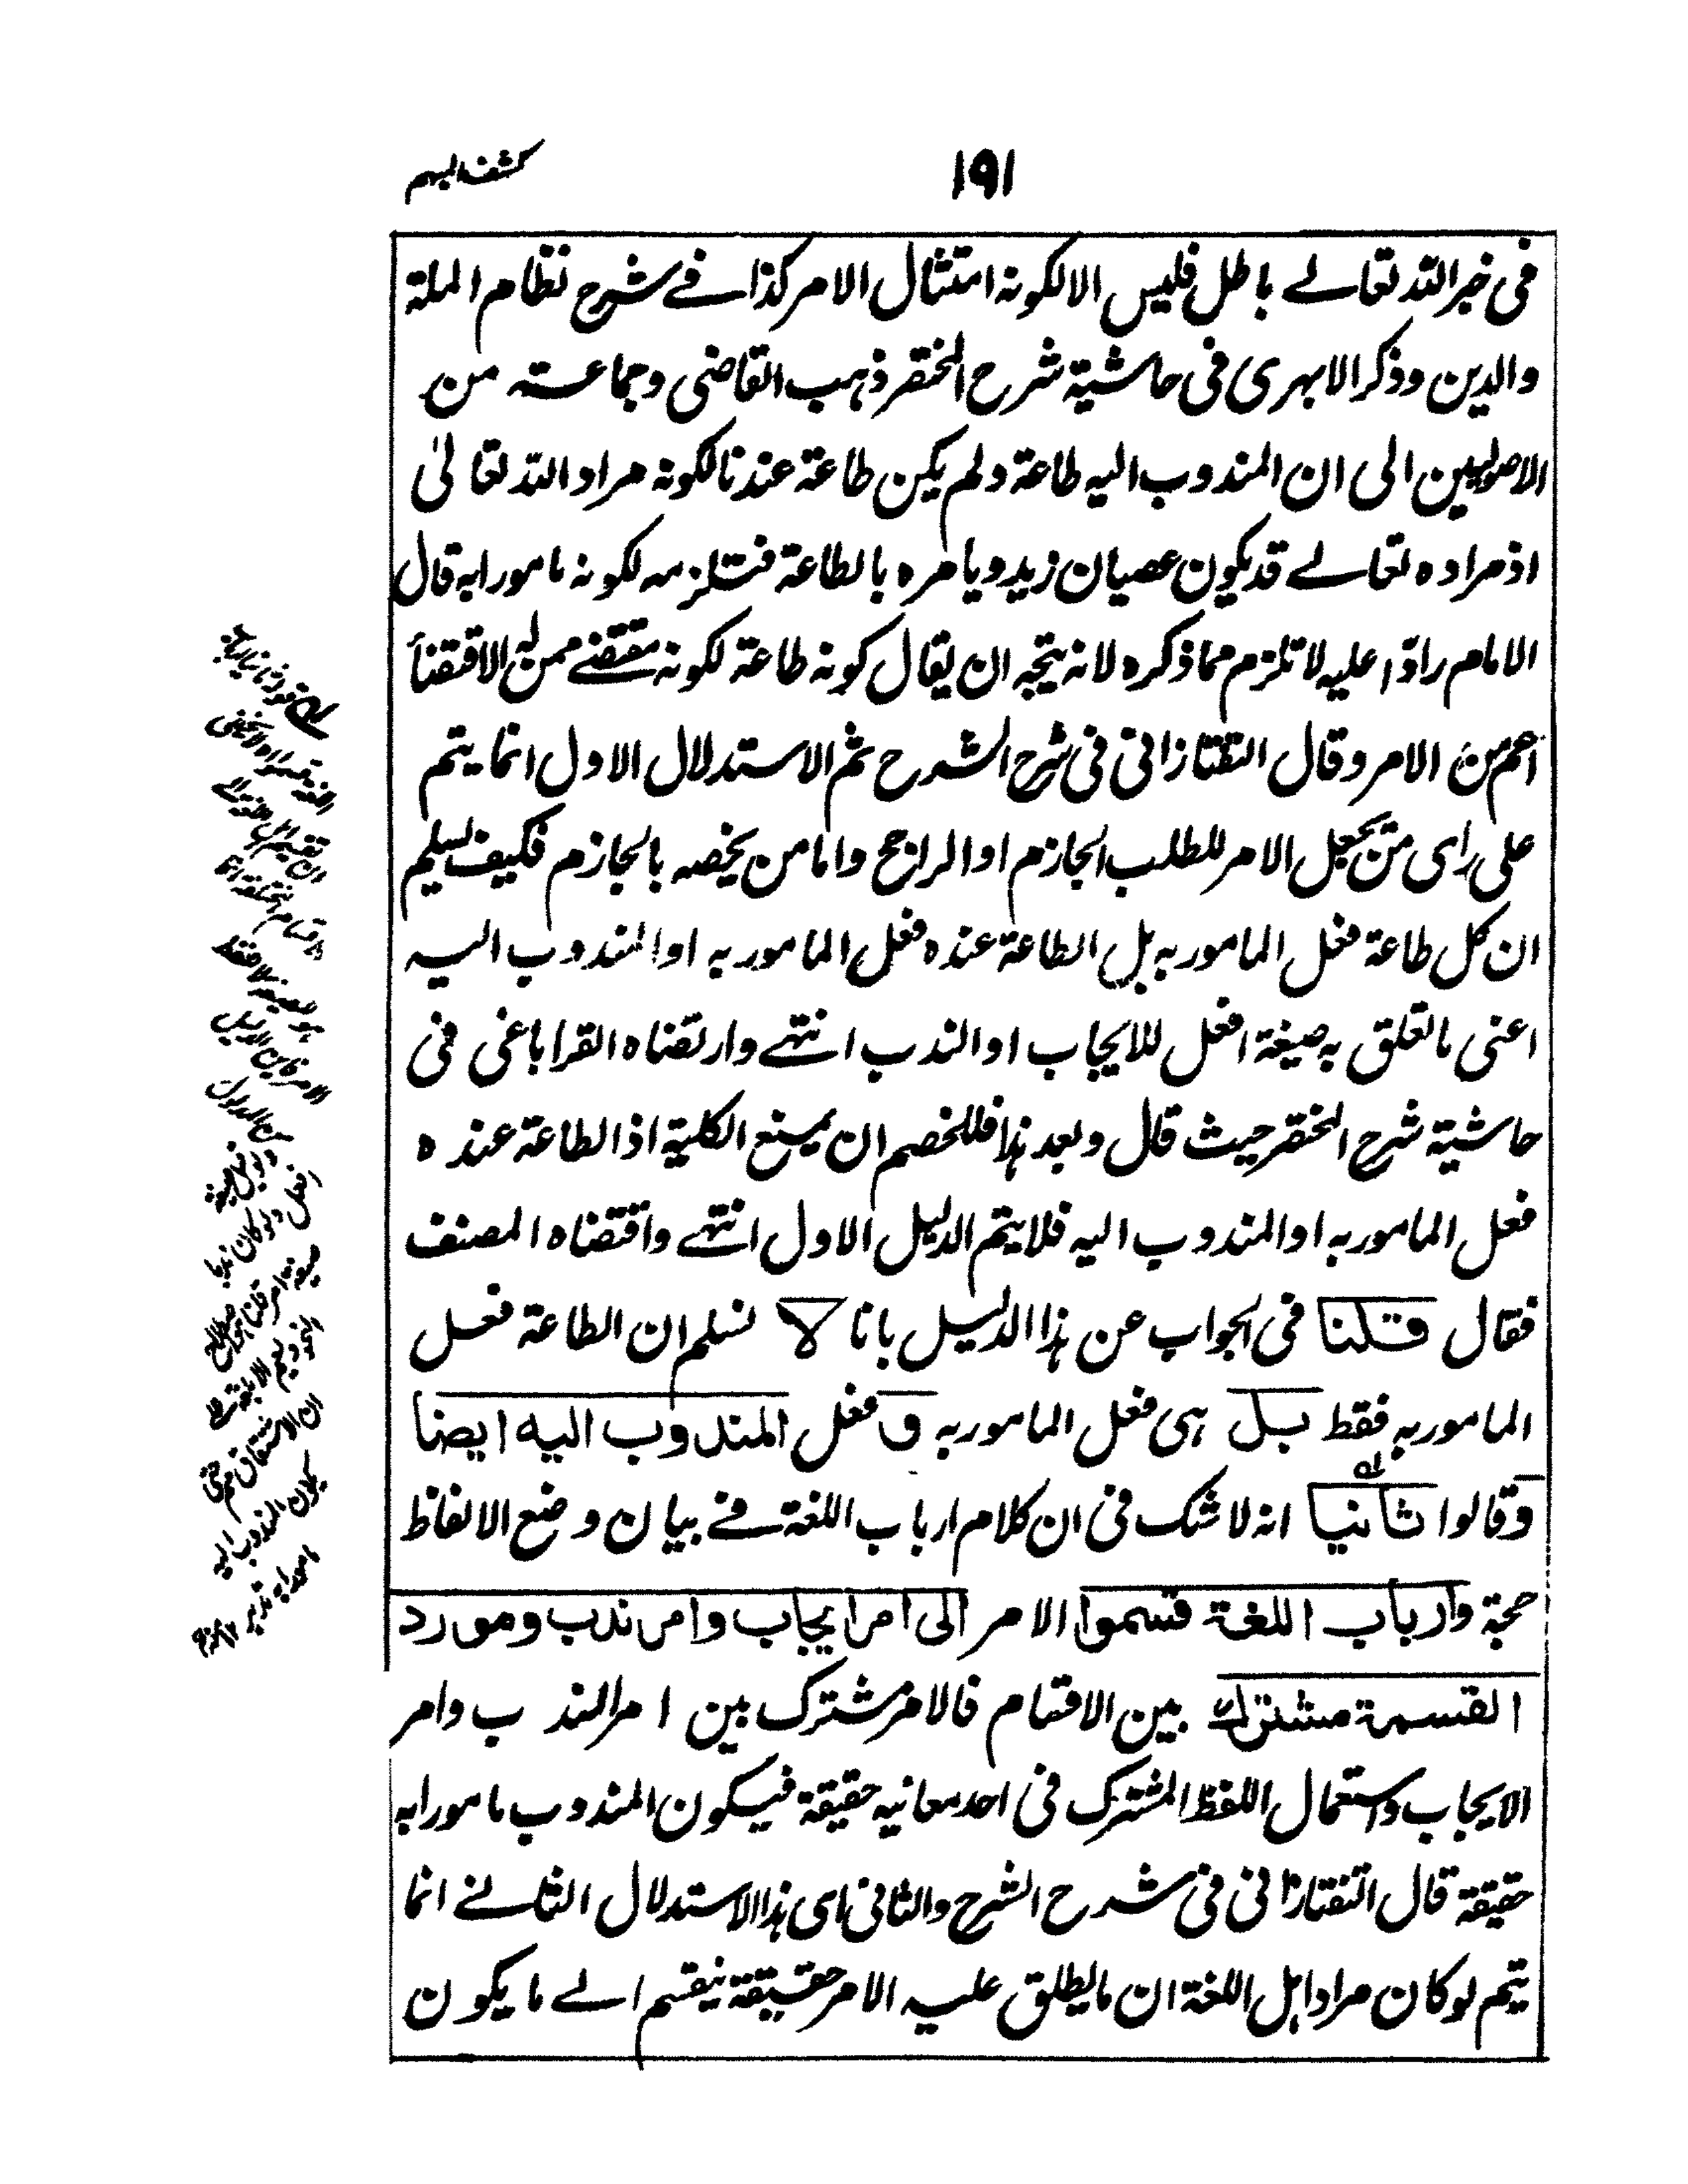 ١٩١
كشف المبهم
فى خبر الله تعالے باطل فليس الا لكونه امتثال الامر كذا فے شرح نظام الملة
والدين وذكر الابهرى فى حاشية شرح المختصر ذهب القاضى وجماعة من
الاصوليين الى ان المندوب اليه طاعة ولم يكن طاعة عندنا لكونه مراد الله تعالىٰ
اذ مراده تعالے قد يكون عصيان زيد ويامره بالطاعة فتلزمه لكونه مامورا به قال
الامام رادّا عليه لا تلزم مما ذكره لانه يتجه ان يقال كونه طاعة لكونه مقتضے ممن له الاقتضأ
اعم من الامر وقال التفتازانى فى شرح الشرح ثم الاستدلال الاول انما يتم
على راى من يجعل الامر للطلب الجازم او الراجح واما من يخصه بالجازم فكيف يسلم
ان كل طاعة فعل المامور به بل الطاعة عنده فعل المامور به او المندوب اليه
اعنى ما تعلق به صيغة افعل للايجاب او الندب انتهے وارتضاه القراباغى فى
حاشية شرح المختصر حيث قال وبعد هذا فللخصم ان يمنع الكلية اذ الطاعة عنده
فعل المامور به او المندوب اليه فلا يتم الدليل الاول انتهے واقتضاه المصنف
فقال قلنا فى الجواب عن هذا الدليل بانا لا نسلم ان الطاعة فعل
المامور به فقط بل هى فعل المامور به و فعل المندوب اليه ايضا
وقالوا ثانيا انه لا شك فى ان كلام ارباب اللغة فے بيان وضع الالفاظ
حجة وارباب اللغة قسموا الامر الى امر ايجاب وامر ندب ومورد
القسمة مشترك بين الاقسام فالامر مشترك بين امر الندب وامر
الايجاب واستعمال اللفظ المشترك فى احد معانيه حقيقة فيكون المندوب مامورا به
حقيقة قال التفتازانى فى شرح الشرح والثانى اى هذا الاستدلال الثانے انما
يتم لو كان مراد اهل اللغة ان ما يطلق عليه الامر حقيقة ينقسم الے ما يكون